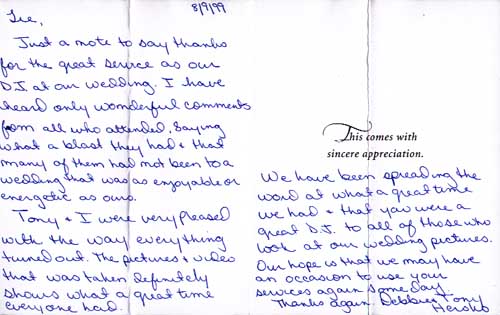 8/9/99
Just a note to say thanks
for the great service as our
D.J. at our wedding. I have
heard only wonderful comments
from all who attended. Saying
what a blast they had & that
many of them had not been to a
wedding that was as enjoyable or
energetic as ours.
Tony & I were very pleased
with the way everything
turned out. The pictures & video
that was taken definitely
shows what a great time
everyone had.
This comes with
sincere appreciation.
We have been spreading the
word at what a great time
we had & that you were a
great D.J. to all of those who
look at our wedding pictures.
Our hope is that we may have
an occasion to use your
services again some day.
Thanks again. Debbie & Tony